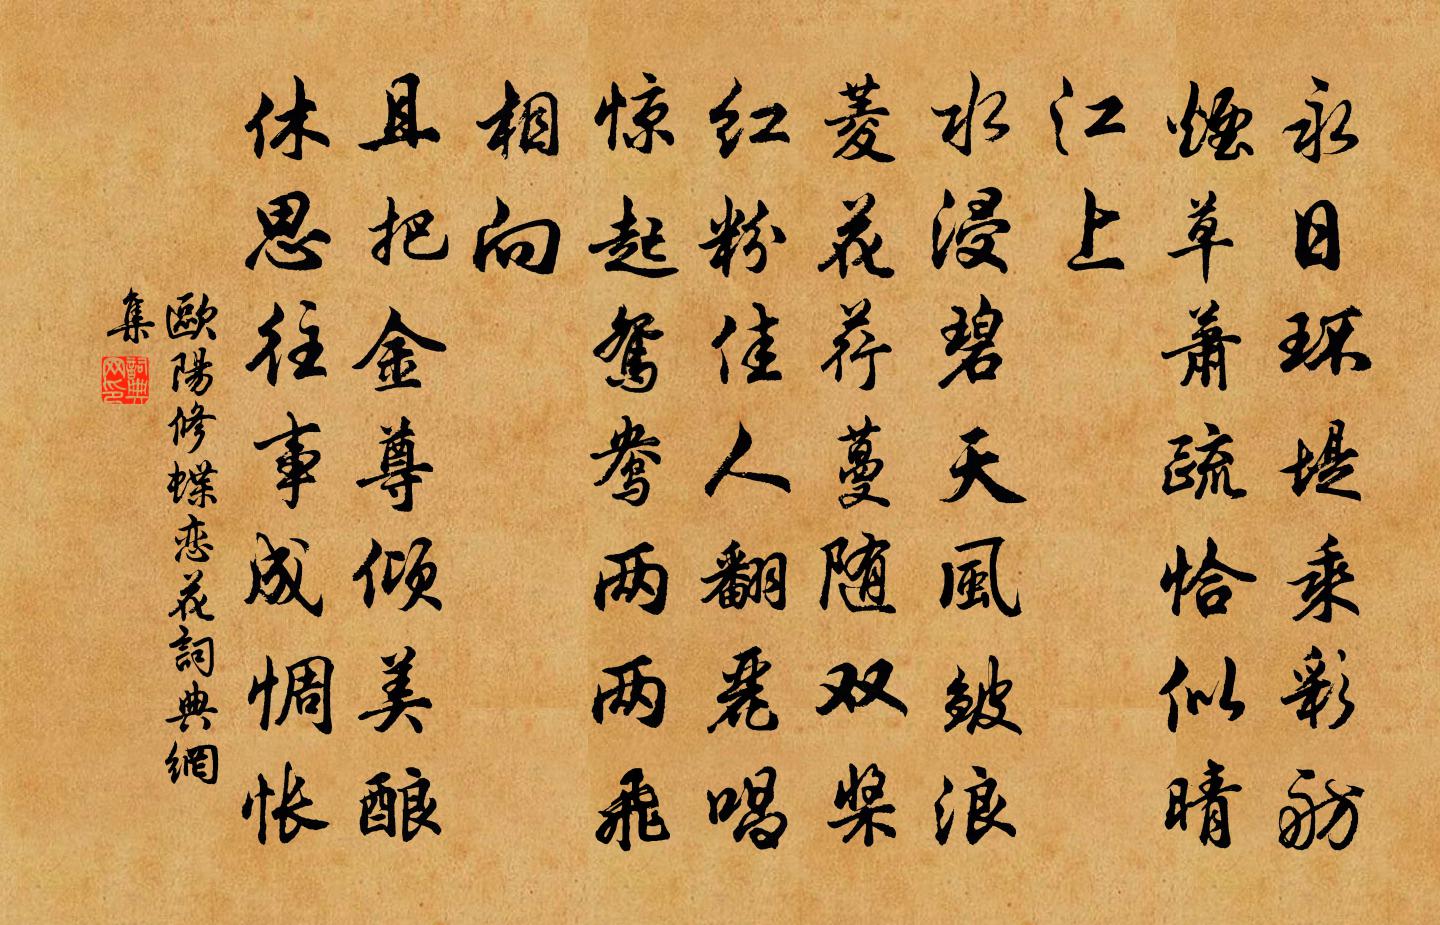 永日环堤乘彩舫
烟草萧疏恰似晴
江上
水浸碧天風皱浪
菱花荇蔓随双桨
红粉佳人翻麗唱
惊起鸳鸯两两飛
相向
且把金尊倾美酿
休思往事成惆怅
歐陽修蝶恋花詞典網
集
詞典网印